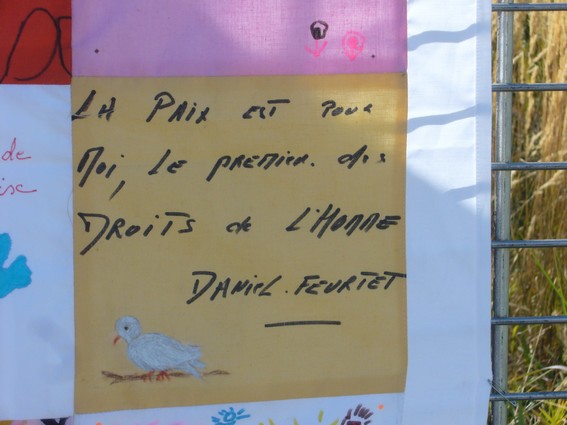 LA PAIX EST POUR
MOI, LE PREMIER des
DROITS de L'HOMME
DANIEL.FEURTET
de